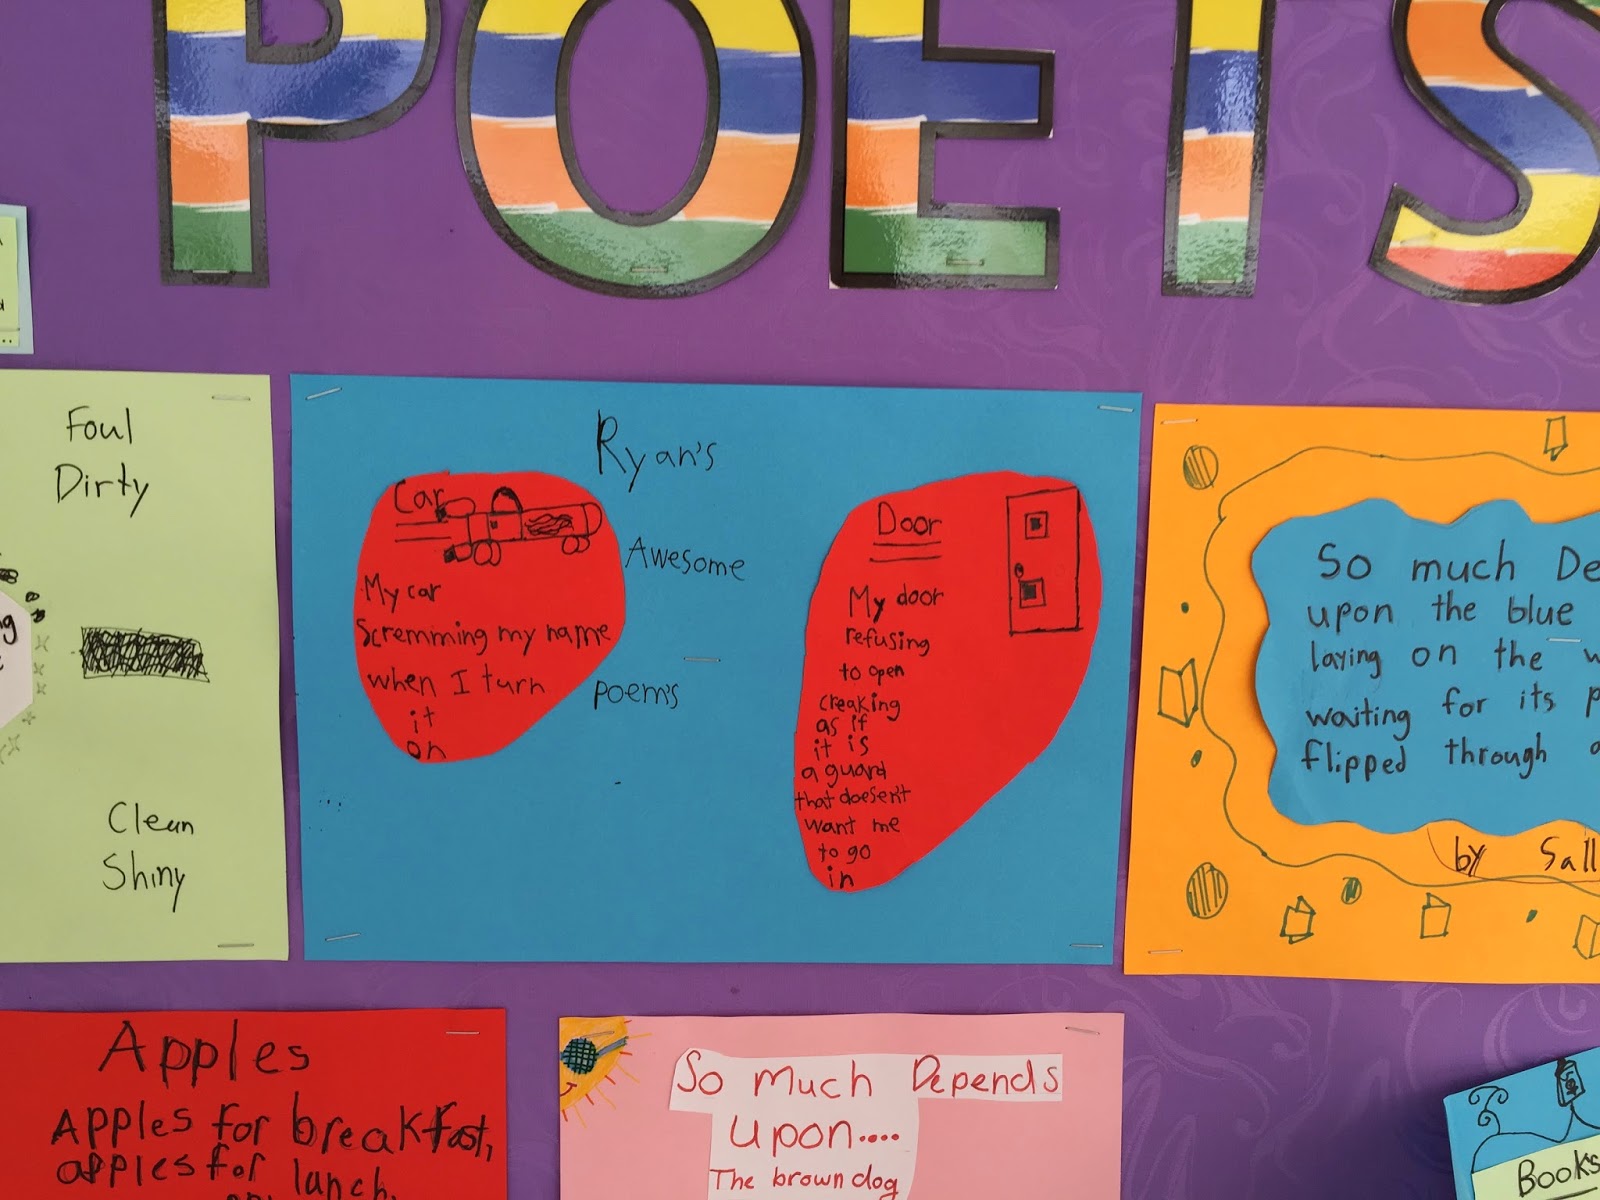 POETS
Foul
Dirty
Clean
Shiny
Ryan's
Awesome
poem's
Car
My car
Scremming my name
when I turn
it
on
Door
My door
refusing
to open
creaking
as if
it is
a guard
that doesen't
want me
to go
in
So much De
upon the blue
laying on the w
waiting for its p
flipped through a
by Sall
Apples
Apples for breakfast,
apples for lunch,
So Much Depends
Upon....
The brown dog
Books